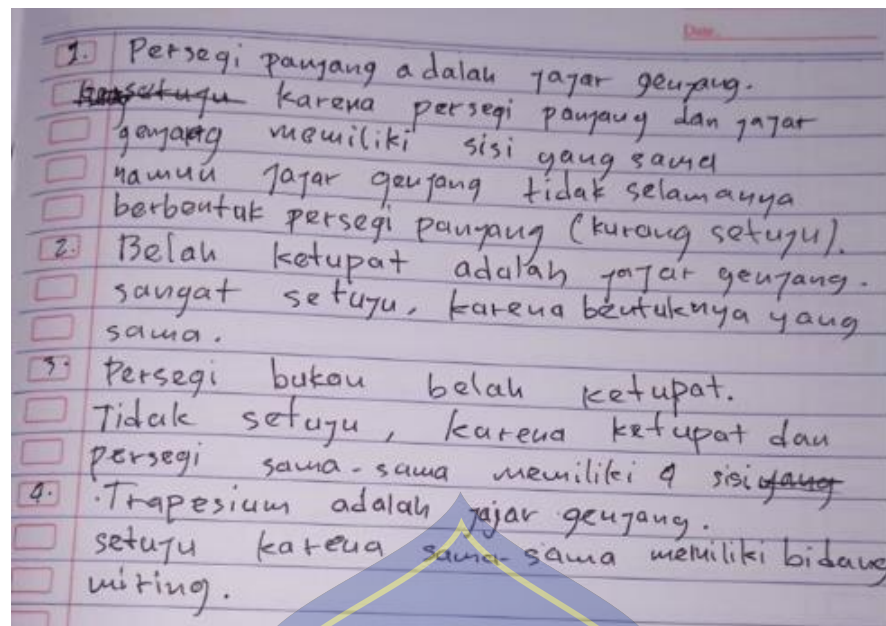 Date.
1. Persegi panjang adalah jajar genjang.
setuju karena persegi panjang dan jajar
genjang memiliki sisi yang sama
namun jajar genjang tidak selamanya
berbentuk persegi panjang (kurang setuju).
2. Belah ketupat adalah jajar genjang.
sangat setuju, karena bentuknya yang
sama.
3. Persegi bukan belah ketupat.
Tidak setuju, karena ketupat dan
persegi sama-sama memiliki 4 sisi yang
4. Trapesium adalah jajar genjang.
setuju karena sama-sama memiliki bidang
miring.